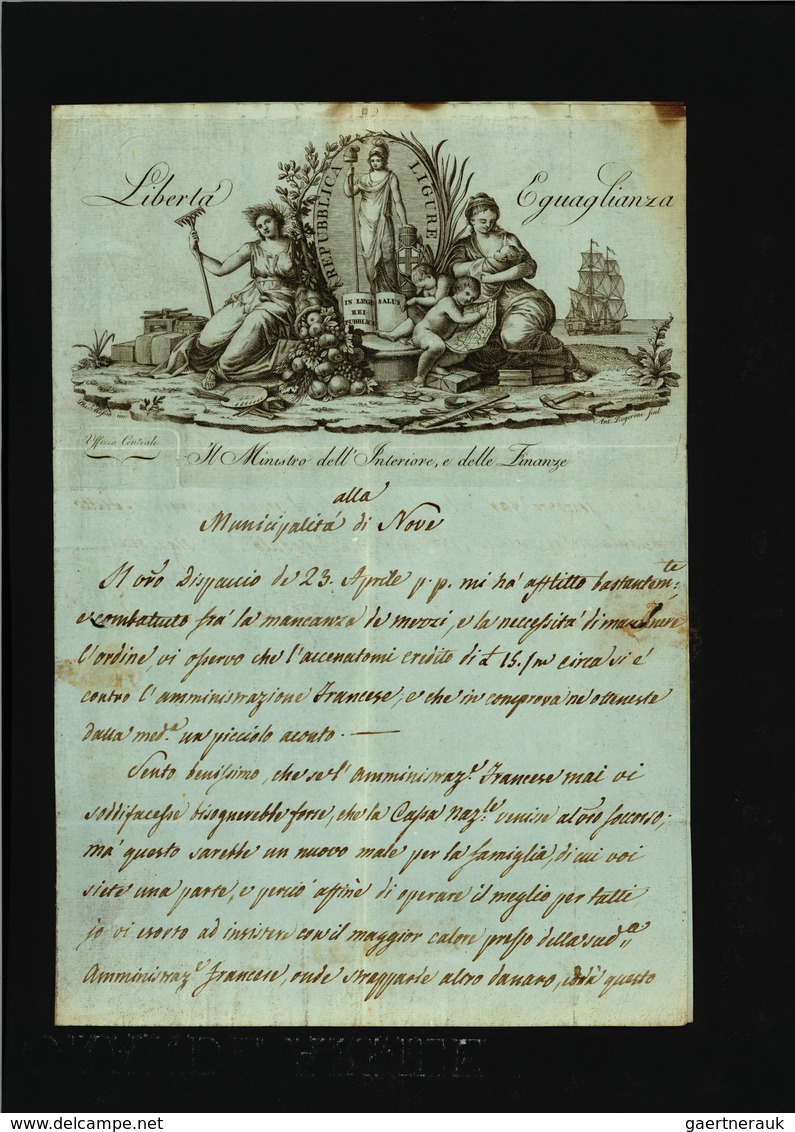 Libertà
REPUBBLICA LIGURE
Eguaglianza
IN LEGE SALUS
REI
PUBBLICÆ
inv.
Ant. sculp.
Uffizio Centrale
Il Ministro dell'Interiore, e delle Finanze
alla
Municipalità di Nove
Il vro Dispaccio de 23. Aprile p. p. mi hà afflitto bastantem.te
e combattuto frà la mancanza de mezzi, e la neccessità di mantenere
l'ordine vi osservo che l'accenatomi credito di £ 15./m circa si é
contro l'amministrazione Francese, e che in comprova ne otteneste
dalla med.a un picciolo aconto. —
Sento benissimo, che se l'Amministraz.e Francese mai vi
soddifacesse bisognerebbe forse, che la Cassa Naz.le venisse al vro soccorso;
mà questo sarebbe un nuovo male per la famiglia, di cui voi
siete una parte, e perciò affine di operare il meglio per tutti
io vi esorto ad insistere con il maggior calore presso della sud.a
Amministraz.e Francese, onde strapparle altro danaro, questo
delcampe.net
gaertnerauk